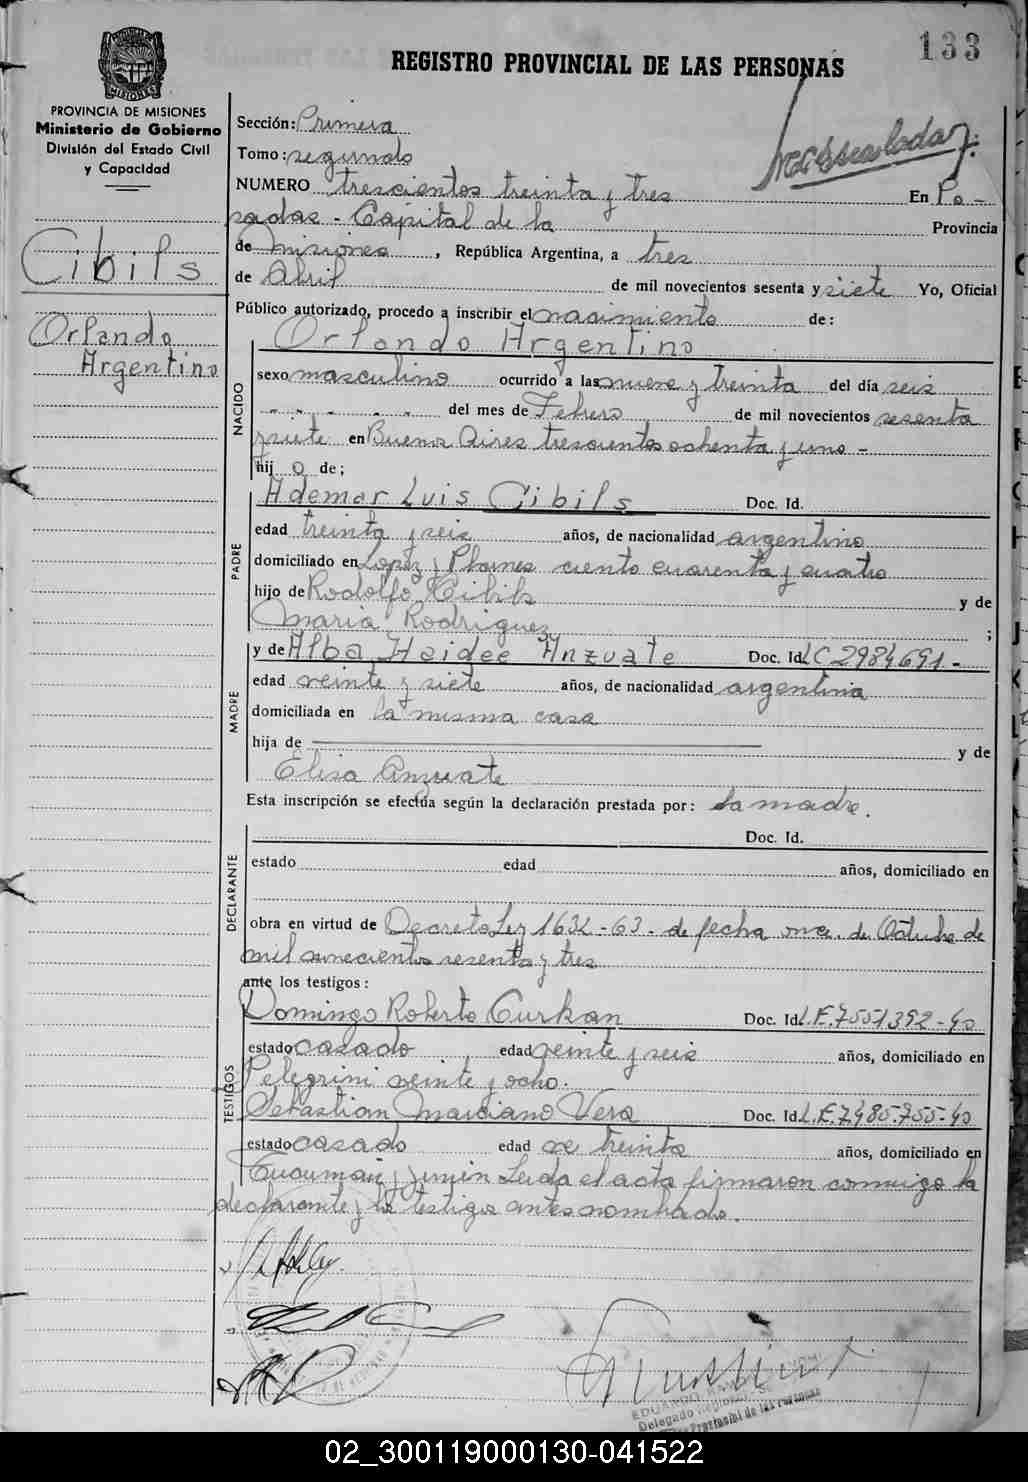 133
REGISTRO PROVINCIAL DE LAS PERSONAS
MISIONES
PROVINCIA DE MISIONES
Ministerio de Gobierno
División del Estado Civil
y Capacidad
Cibils
Orlando
Argentino
Sección: Primera
Tomo: segundo
NUMERO trescientos treinta y tres En Po-
sadas - Capital de la Provincia
de Misiones, República Argentina, a tres
de Abril de mil novecientos sesenta y siete Yo, Oficial
Público autorizado, procedo a inscribir el nacimiento de:
Orlando Argentino
NACIDO
sexo masculino ocurrido a las nueve y treinta del día seis
del mes de Febrero de mil novecientos sesenta
y siete en Buenos Aires trescientos ochenta y uno -
hij o de;
PADRE
Ademar Luis Cibils Doc. Id.
edad treinta y seis años, de nacionalidad argentino
domiciliado en Lopez y Planes ciento cuarenta y cuatro
hijo de Rodolfo Cibils y de
Maria Rodriguez ;
MADRE
y de Alba Haidee Anzuate Doc. Id. LC 2984691-
edad veinte y siete años, de nacionalidad argentina
domiciliada en la misma casa
hija de y de
Elisa Anzuate
Esta inscripción se efectúa según la declaración prestada por: la madre.
DECLARANTE
Doc. Id.
estado edad años, domiciliado en
obra en virtud de Decreto Ley 1632-63- de fecha once de Octubre de
mil novecientos sesenta y tres
ante los testigos:
TESTIGOS
Domingo Roberto Curkan Doc. Id. L.E. 7551392-40
estado casado edad veinte y seis años, domiciliado en
Pelegrini veinte y ocho.
Sebastian Marciano Vera Doc. Id. L.E. 7.485.755-40
estado casado edad de treinta años, domiciliado en
Tucuman y Junin Leida el acta firmaron conmigo la
declarante y los testigos antes nombrado.
EDUARDO
Delegado Regional
Provincial de las Personas
02_300119000130-041522